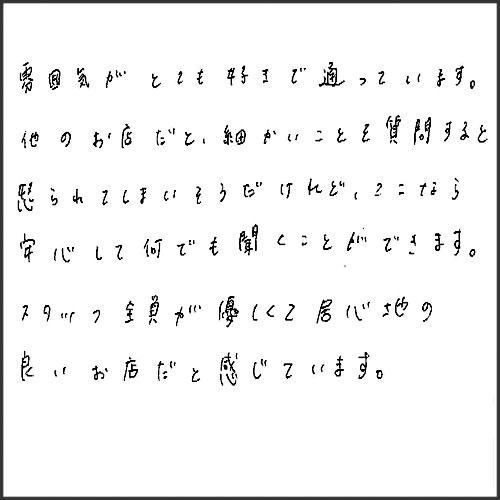 雰囲気がとても好きで通っています。
他のお店だと、細かいことを質問すると
怒られてしまいそうだけれど、ここなら
安心して何でも聞くことができます。
スタッフ全員が優しくて居心地の
良いお店だと感じています。